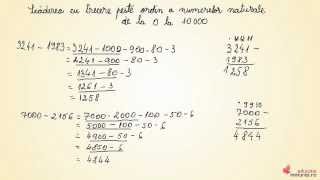 Scăderea cu trecere peste ordin a numerelor naturale
de la 0 la 10 000
3241 - 1983 = 3241 - 1000 - 900 - 80 - 3
= 2241 - 900 - 80 - 3
= 1341 - 80 - 3
= 1261 - 3
= 1258
3241 -
1983
1258
7000 - 2156 = 7000 - 2000 - 100 - 50 - 6
= 5000 - 100 - 50 - 6
= 4900 - 50 - 6
= 4850 - 6
= 4844
9 9 10
7000 -
2156
4844